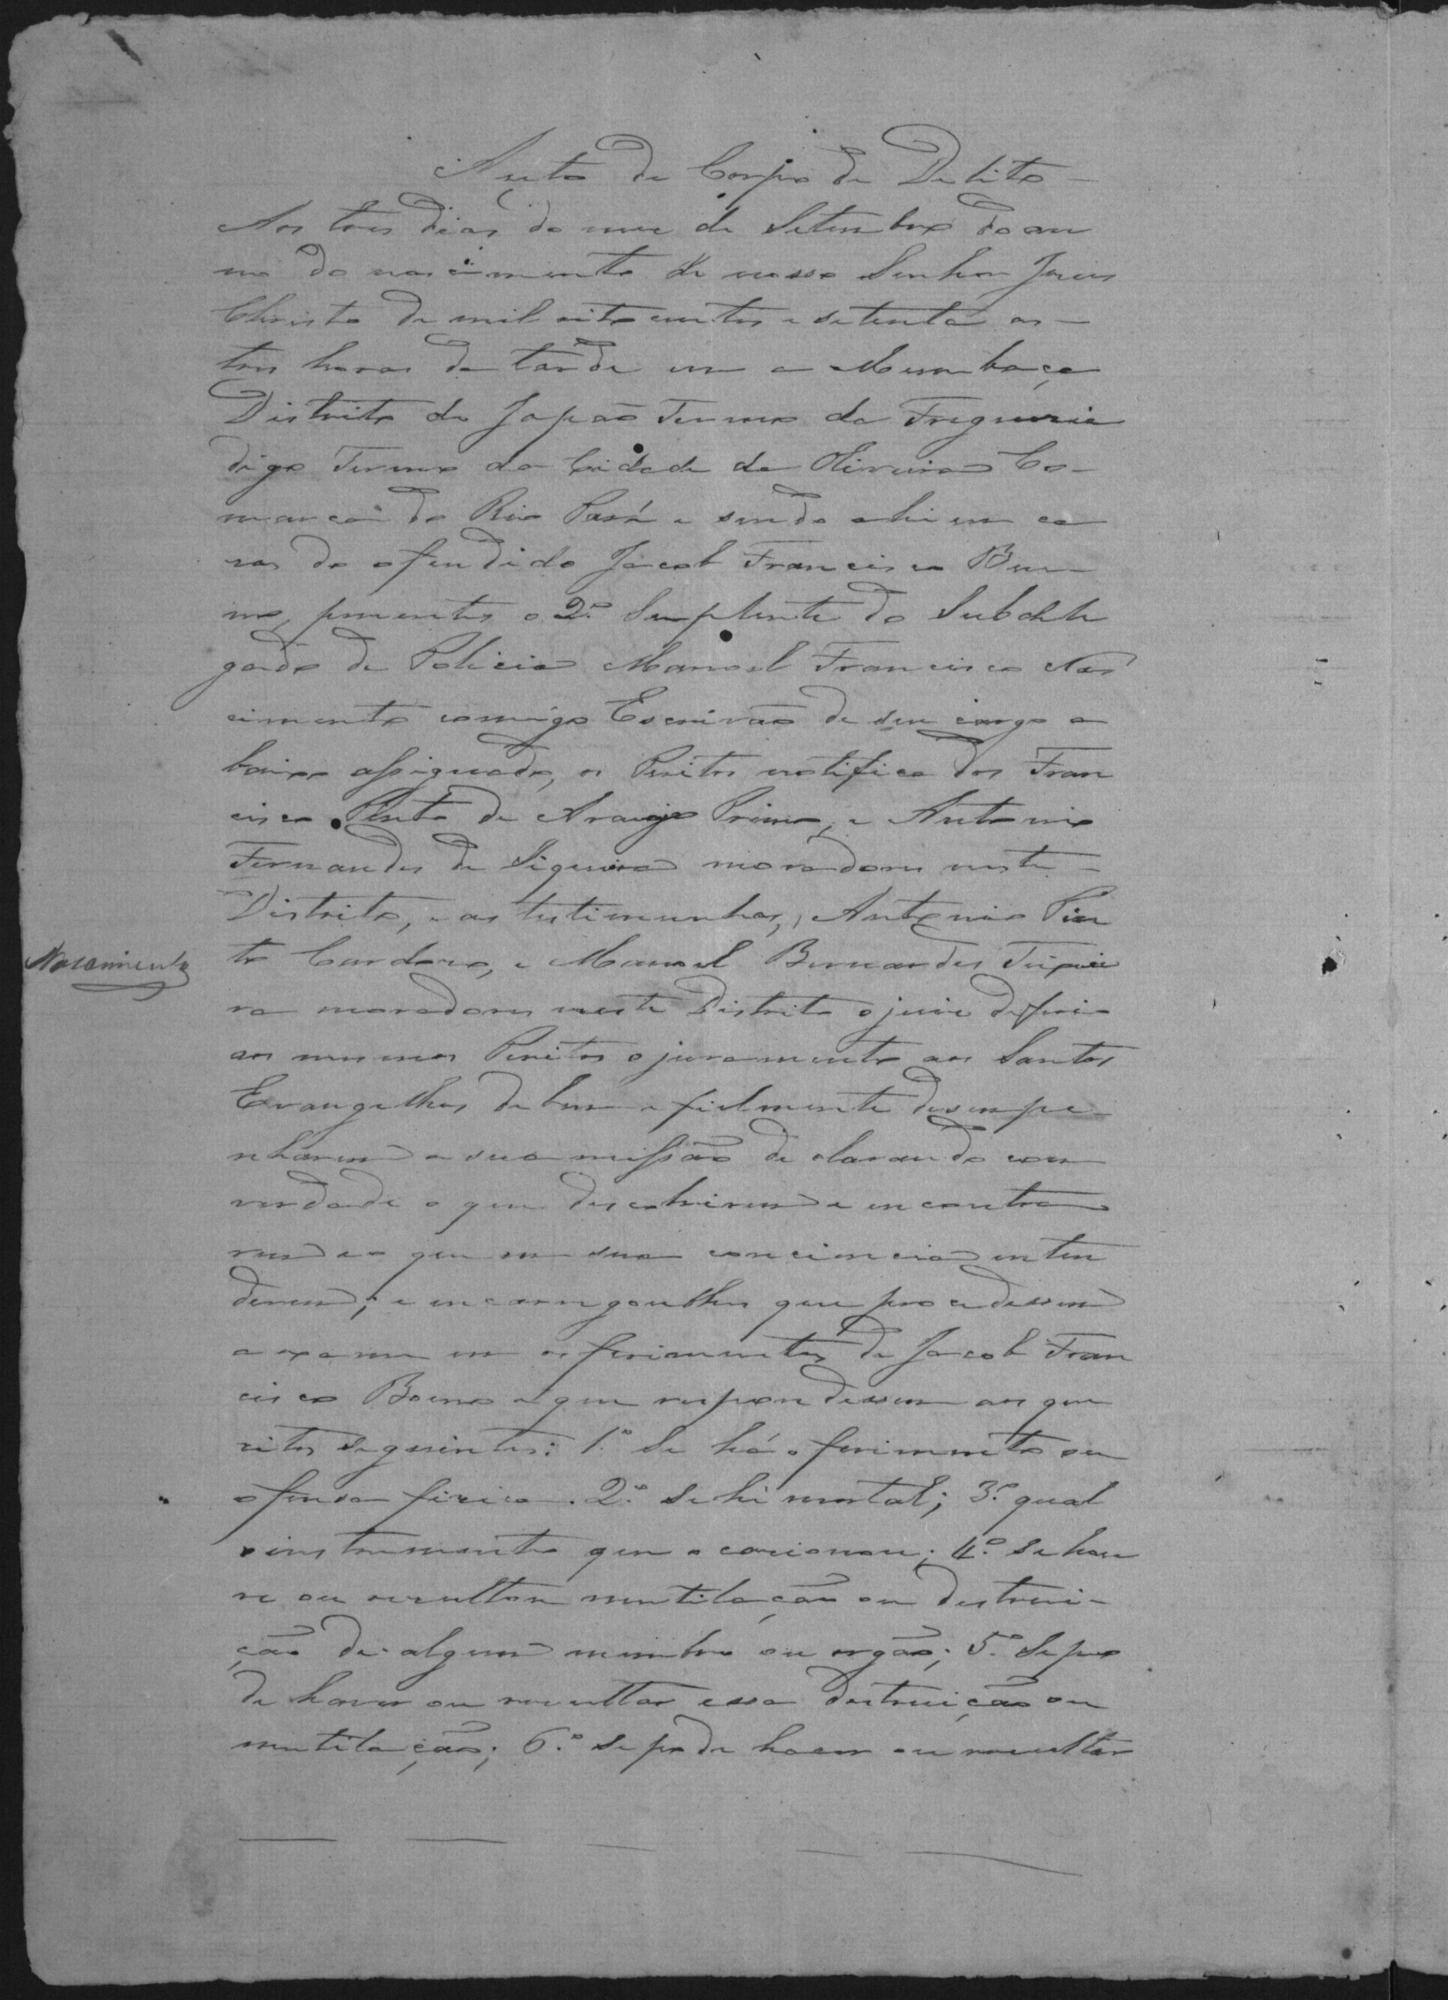 Auto de Corpo de Delito
Aos tres dias do mez de Setembro do an
no do nascimento de nosso Senhor Jesus
Christo de mil oito centos e setenta as
tres horas da tarde em a Mesmbaça
Distrito do Japão Termo da Freguesia
digo Termo da Cidade de Oliveira Co-
marca do Rio Pará e sendo ahi em ca
sas do ofendido Jacob Francisco Bue
no, presentes o 2º Suplente do Subdele
gado de Policia Manoel Francisco Nas
cimento comigo Escrivão de seu cargo a
baixo assignado, os Peritos notificados Fran
cisco Pinto de Araujo Primo, e Antonio
Fernandes de Siqueira moradores neste
Distrito, e as testimunhas, Antonio Pin
Nascimento
to Cardoso, e Manoel Bernardes Teixei
ra moradores neste Distrito o juiz deferio
aos mesmos Peritos o juramento aos Santos
Evangelhos de bem e fielmente desempe-
nharem a sua missão declarando com
verdade o que descobrirem e encontra
rem e o que em sua conciencia enten
derem; e encarregou lhes que procedessem
a exame em os ferimentos de Jacob Fran
cisco Boeno e que respondessem aos que
zitos seguintes: 1º Se há o ferimento ou
ofensa fizica. 2º Se hé mortal; 3º qual
o instrumento que o cazionou; 4º Se hou
ve ou rezultou mutilação ou destrui-
ção de algum membro ou orgão; 5º Se po
de haver ou rezultar essa destruição ou
mutilação; 6º Se pode haver ou rezultar